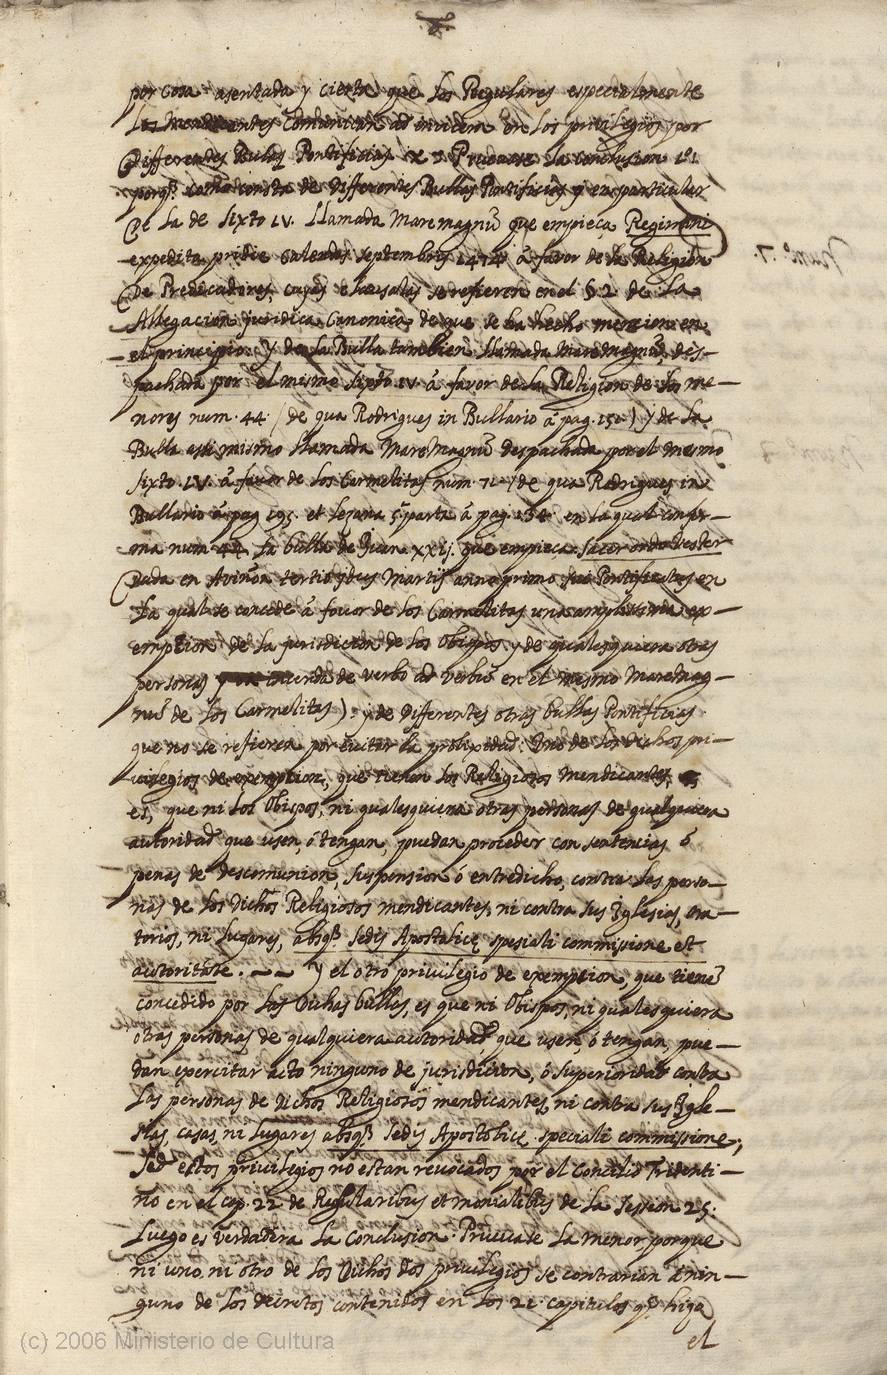 por cosa asentada y cierta que los Regulares especialmente
los Mendicantes comunican ad invicem en los privilegios por
Differentes Bulas Pontificias Pruevase la conclusion
porq̃ como consta de Differentes Bullas Pontificias y en particular
De la de Sixto IV. llamada Maremagnũ que empieca Regimini
expedita pridie Calendas septembris 1474 à favor de la Religion
De Predicadores, cuyas clausulas se refieren en el §. 2 de la
Allegacion juridica Canonica de que se ha hecho mencion en
el principio. Y de la Bulla tambien llamada Maremagnũ des-
pachada por el mismo Sixto IV à favor de la Religion de los me-
nores num. 44. (de qua Rodrigues in Bullario à pag. 151.) y de la
Bulla assimismo llamada MareMagnũ despachada por el mesmo
Sixto. IV. à favor de los Carmelitas num. 71 (de qua Rodrigues in
Bullario à pag 195. et Lezana 5. parte à pag. 134 en la qual confir-
ma num 44 la bulla de Juan xxij. que empieca Sacer ordo Vester
Dada en Aviñon tertio ydus Martij anno primo sui Pontificatus en
La qual se concede à favor de los Carmelitas una amplissima ex-
emption de la jurisdicion de los Obispos y de qualesquiera otras
personas inserta de verbo ad verbũ en el mesmo Maremag-
nũ de los Carmelitas). y de Differentes otras bullas Pontificias
que no se refieren por evitar la prolixidad: Uno de los dichos pri-
vilegios de exemption, que tienen los Religiosos Mendicantes
es, que ni los Obispos, ni qualesquiera otras personas de qualquiera
autoridad que usen, ó tengan, puedan proceder con sentencias ó
penas de descomunion, suspension ó entredicho, contra las perso-
nas de los Dichos Religiosos mendicantes, ni contra sus Iglesias, ora-
torios, ni Lugares, absq̃ Sedis Apostolicę spesiali commissione et
autoritate. Y el otro privilegio de exemption, que tienẽ
concedido por las Dichas bullas, es que ni Obispos, ni qualesquiera
otras personas de qualquiera autoridad que usen, ó tengan, pue-
dan exercitar acto ninguno de jurisdicion, ó superioridad contra
Las personas de Dichos Religiosos mendicantes, ni contra sus Igle-
sias, casas, ni Lugares absq̃ Sedis Apostolicę speciali commissione;
Sed estos privilegios no estan revocados por el Concilio Tridenti-
no en el cap. 22 de Regularibus et monialibus de La Session 25.
Luego es verdadera La Conclusion. Pruevase La menor, porque
ni uno, ni otro de los Dichos dos privilegios se contrarian à nin-
guno de los decretos contenidos en los 21 capitulos q̃ haga
el
num. 7.